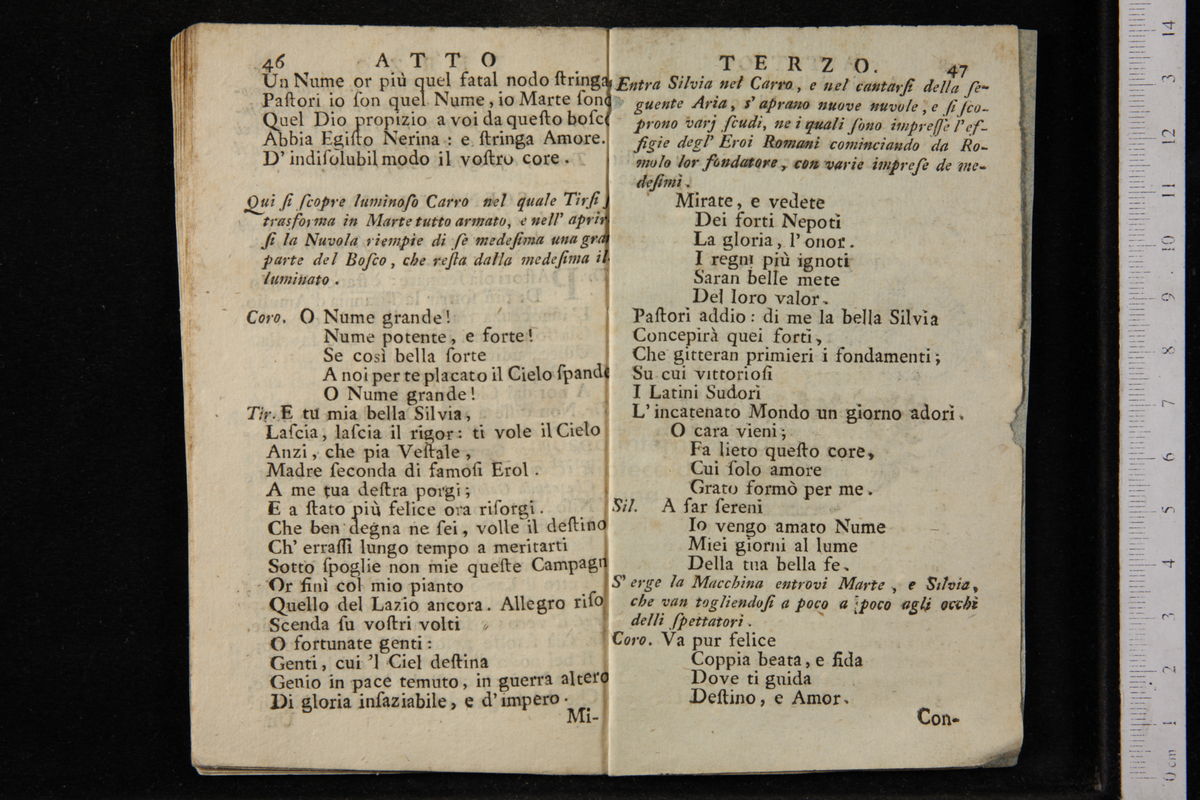 46 ATTO
Un Nume or più quel fatal nodo ſtringa
Paſtori io ſon quel Nume, io Marte ſono
Quel Dio propizio a voi da queſto boſco
Abbia Egiſto Nerina: e ſtringa Amore.
D' indiſolubil modo il voſtro core.
Qui ſi ſcopre luminoſo Carro nel quale Tirſi
trasforma in Marte tutto armato, e nell' aprir
ſi la Nuvola riempie di ſè medeſima una gran
parte del Boſco, che reſta dalla medeſima il-
luminato.
Coro. O Nume grande!
Nume potente, e forte!
Se così bella ſorte
A noi per te placato il Cielo ſpande
O Nume grande!
Tir. E tu mia bella Silvia,
Laſcia, laſcia il rigor: ti vole il Cielo
Anzi, che pia Veſtale,
Madre feconda di famoſi Eroi.
A me tua deſtra porgi;
E a ſtato più felice ora riſorgi.
Che ben degna ne ſei, volle il deſtino
Ch' erraſſi lungo tempo a meritarti
Sotto ſpoglie non mie queſte Campagn
Or finì col mio pianto
Quello del Lazio ancora. Allegro riſo
Scenda ſu voſtri volti
O fortunate genti:
Genti, cui 'l Ciel deſtina
Genio in pace temuto, in guerra altero
Di gloria inſaziabile, e d' impero.
Mi-
TERZO. 47
Entra Silvia nel Carro, e nel cantarſi della ſe-
guente Aria, s' aprano nuove nuvole, e ſi ſco-
prono varj ſcudi, ne i quali ſono impreſſe l' ef-
figie degl' Eroi Romani cominciando da Ro-
molo lor fondatore, con varie impreſe de me-
deſimi.
Mirate, e vedete
Dei forti Nepoti
La gloria, l' onor.
I regni più ignoti
Saran belle mete
Del loro valor.
Paſtori addio: di me la bella Silvia
Concepirà quei forti,
Che gitteran primieri i fondamenti;
Su cui vittorioſi
I Latini Sudori
L' incatenato Mondo un giorno adori.
O cara vieni;
Fa lieto queſto core,
Cui ſolo amore
Grato formò per me.
Sil. A far ſereni
Io vengo amato Nume
Miei giorni al lume
Della tua bella fe.
S' erge la Macchina entrovi Marte, e Silvia,
che van togliendoſi a poco a poco agli occhi
delli ſpettatori.
Coro. Va pur felice
Coppia beata, e fida
Dove ti guida
Deſtino, e Amor.
Con-
0 cm 1 2 3 4 5 6 7 8 9 10 11 12 3 14